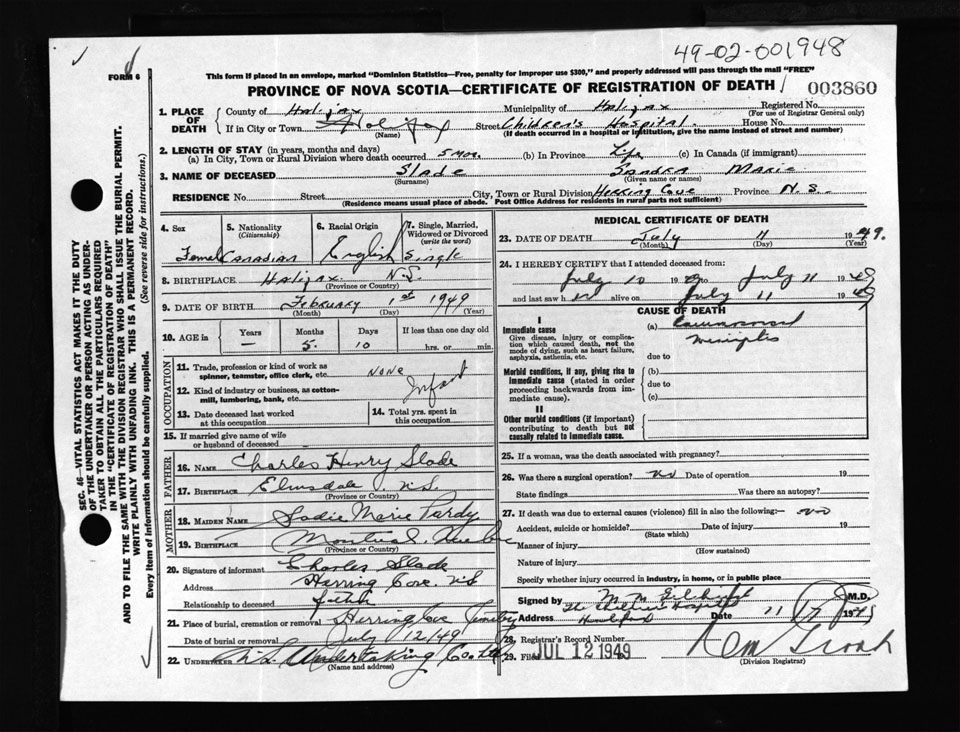 49-02-001948
FORM 6
This form if placed in an envelope, marked "Dominion Statistics—Free, penalty for improper use $300," and properly addressed will pass through the mail "FREE"
PROVINCE OF NOVA SCOTIA—CERTIFICATE OF REGISTRATION OF DEATH
003860
1. PLACE OF DEATH
County of Halifax Municipality of Halifax Registered No.
(For use of Registrar General only)
If in City or Town Halifax Street Children's Hospital. House No.
(Name) (If death occurred in a hospital or institution, give the name instead of street and number)
2. LENGTH OF STAY (in years, months and days)
(a) In City, Town or Rural Division where death occurred 5 mos. (b) In Province Life (c) In Canada (if immigrant)
3. NAME OF DECEASED Slade Sandra Marie
(Surname) (Given name or names)
RESIDENCE No. Street City, Town or Rural Division Herring Cove Province N.S.
(Residence means usual place of abode. Post Office Address for residents in rural parts not sufficient)
4. Sex 5. Nationality (Citizenship) 6. Racial Origin 7. Single, Married, Widowed or Divorced (write the word)
Female Canadian English Single
8. BIRTHPLACE Halifax N.S.
(Province or Country)
9. DATE OF BIRTH February 1st 1949
(Month) (Day) (Year)
10. AGE in Years Months Days If less than one day old
— 5 10 hrs. or min.
OCCUPATION
11. Trade, profession or kind of work as spinner, teamster, office clerk, etc. NONE
12. Kind of industry or business, as cotton-mill, lumbering, bank, etc. Infant
13. Date deceased last worked at this occupation
14. Total yrs. spent in this occupation
15. If married give name of wife or husband of deceased
FATHER
16. NAME Charles Henry Slade
17. BIRTHPLACE Elmsdale N.S.
(Province or Country)
MOTHER
18. MAIDEN NAME Sadie Marie Pardy
19. BIRTHPLACE Montreal Quebec
(Province or Country)
20. Signature of informant Charles Slade
Address Herring Cove. N.S.
Relationship to deceased father
21. Place of burial, cremation or removal Herring Cove Cemetery
Date of burial or removal July 12/49
22. UNDERTAKER N.S. Undertaking Co. Ltd
(Name and address)
MEDICAL CERTIFICATE OF DEATH
23. DATE OF DEATH July 11 1949.
(Month) (Day) (Year)
24. I HEREBY CERTIFY that I attended deceased from:
July 10 1949 to July 11 1949
and last saw h alive on July 11 1949
CAUSE OF DEATH
I
Immediate cause
Give disease, injury or complication which caused death, not the mode of dying, such as heart failure, asphyxia, asthenia, etc.
(a)
due to
Morbid conditions, if any, giving rise to immediate cause (stated in order proceeding backwards from immediate cause).
(b)
due to
(c)
II
Other morbid conditions (if important) contributing to death but not causally related to immediate cause.
25. If a woman, was the death associated with pregnancy?
26. Was there a surgical operation? no Date of operation 19
State findings Was there an autopsy?
27. If death was due to external causes (violence) fill in also the following:— no
Accident, suicide or homicide? Date of injury 19
(State which)
Manner of injury
(How sustained)
Nature of injury
Specify whether injury occurred in industry, in home, or in public place
Signed by M.D.
The Children's Hospital
Address Halifax Date 11 7 1949
28. Registrar's Record Number
29. Filed JUL 12 1949
(Division Registrar)
SEC. 46—VITAL STATISTICS ACT MAKES IT THE DUTY
OF THE UNDERTAKER OR PERSON ACTING AS UNDER-
TAKER TO OBTAIN ALL THE PARTICULARS REQUIRED
IN THE "CERTIFICATE OF REGISTRATION OF DEATH"
AND TO FILE THE SAME WITH THE DIVISION REGISTRAR WHO SHALL ISSUE THE BURIAL PERMIT.
WRITE PLAINLY WITH UNFADING INK. THIS IS A PERMANENT RECORD.
Every item of information should be carefully supplied. (See reverse side for instructions.)